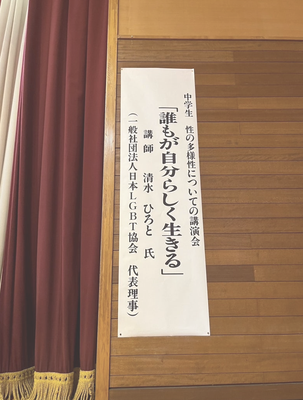 中学生 性の多様性についての講演会
「誰もが自分らしく生きる」
講師 清水 ひろと 氏
(一般社団法人日本LGBT協会 代表理事)